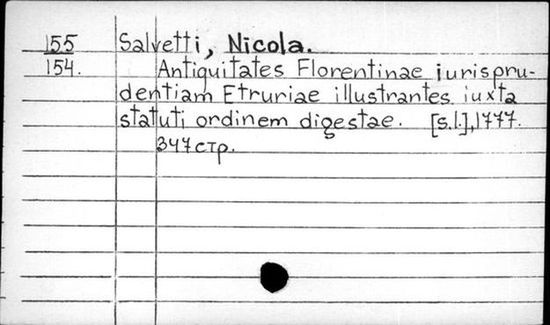 155 Salvetti, Nicola.
154. Antiquitates Florentinae jurispru-
dentiam Etruriae illustrantes iuxta
statuti ordinem digestae. [s.l.], 1777.
347 стр.